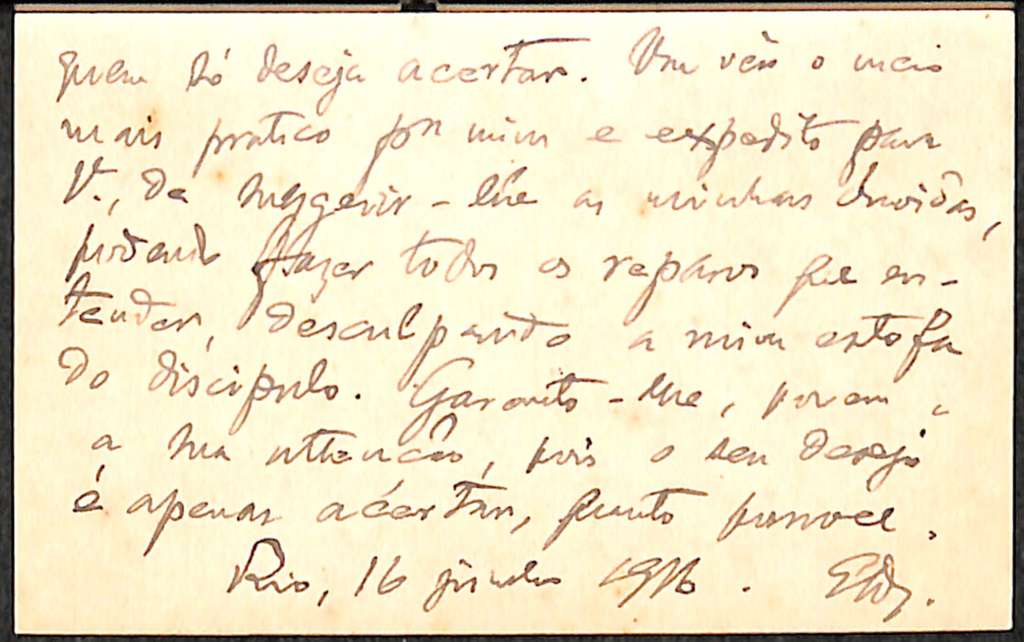 quem só deseja acertar. Um vês o meio
mais pratico pra mim e expedito para
V., de suggerir-lhe as minhas duvidas,
podendo fazer todos os reparos que en-
tender, desculpando a mim
do discipulo. Garanto-lhe, porem,
a sua attenção, pois o seu desejo
é apenas acertar, quanto possivel.
Rio, 16 junho 1916.